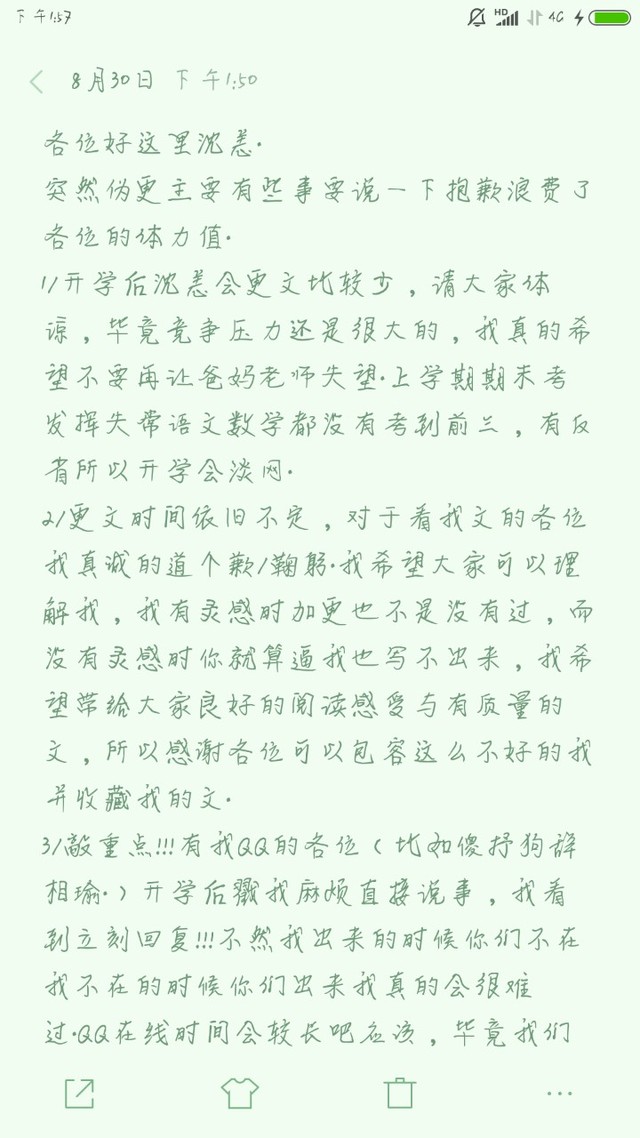 下午1:57
HD 4G
8月30日 下午1:50
各位好这里沈恙.
突然伪更主要有些事要说一下抱歉浪费了
各位的体力值.
1/开学后沈恙会更文比较少，请大家体
谅，毕竟竞争压力还是很大的，我真的希
望不要再让爸妈老师失望.上学期期末考
发挥失常语文数学都没有考到前三，有反
省所以开学会淡网.
2/更文时间依旧不定，对于看我文的各位
我真诚的道个歉/鞠躬.我希望大家可以理
解我，我有灵感时加更也不是没有过，而
没有灵感时你就算逼我也写不出来，我希
望带给大家良好的阅读感受与有质量的
文，所以感谢各位可以包容这么不好的我
并收藏我的文.
3/敲重点!!!有我QQ的各位（比如傻抒狗辞
相瑜.）开学后戳我麻烦直接说事，我看
到立刻回复!!!不然我出来的时候你们不在
我不在的时候你们出来我真的会很难
过.QQ在线时间会较长吧应该，毕竟我们